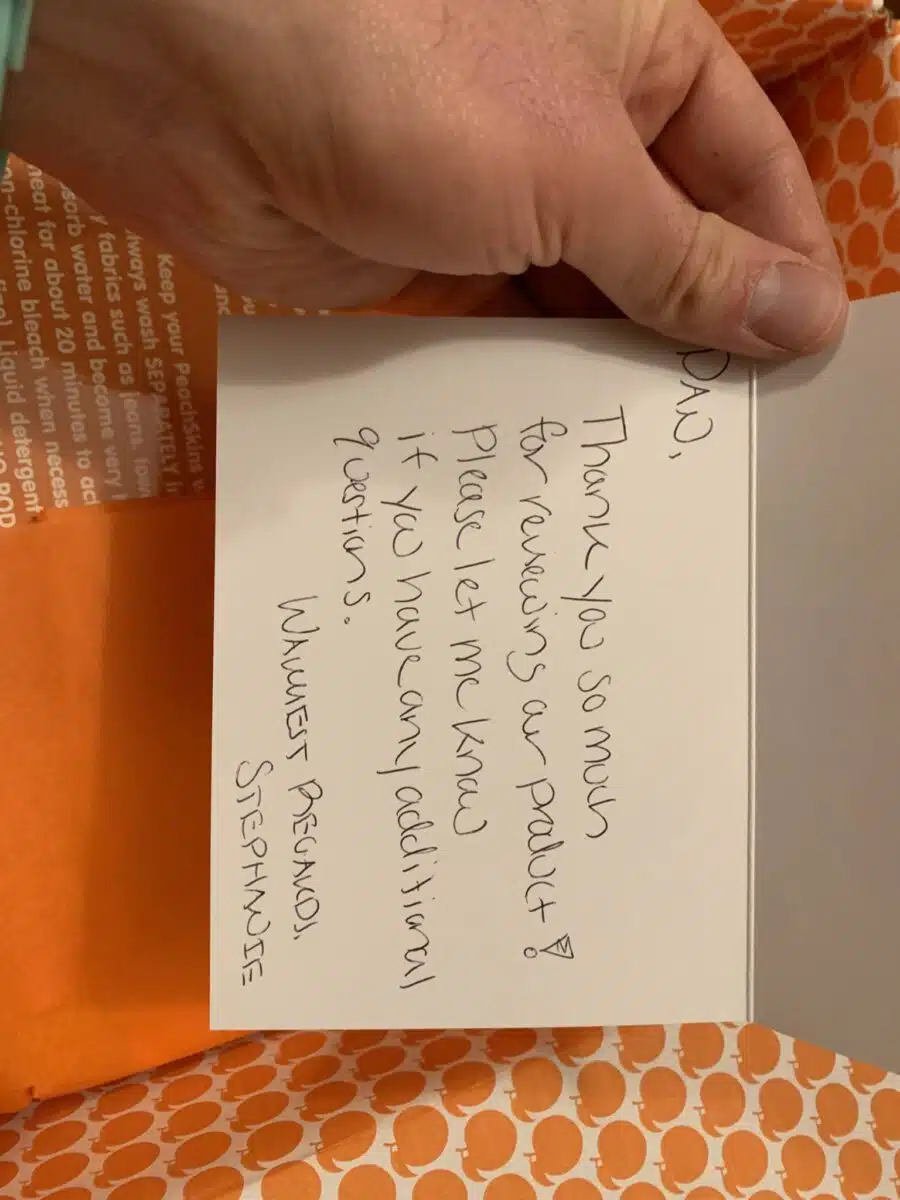 DAN,
Thank you so much
for reviewing our product!
Please let me know
if you have any additional
questions.
WARMEST REGARDS,
STEPHANIE
Keep your PeachSkins
wash SEPARATELY
fabrics such as jeans,
water and become very
heat for about 20 minutes to
bleach when
Liquid detergent